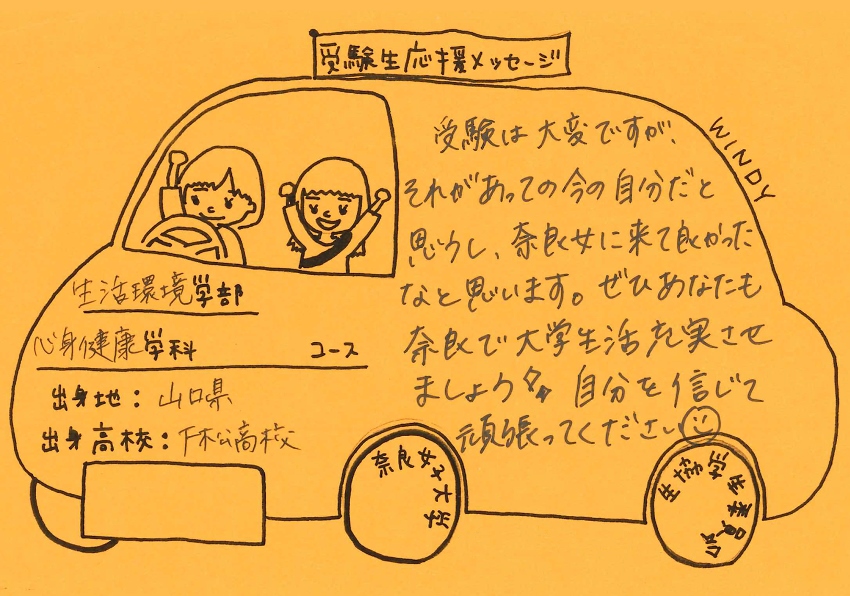 受験生応援メッセージ
WINDY
受験は大変ですが、
それがあっての今の自分だと
思うし、奈良女に来て良かった
なと思います。ぜひあなたも
奈良で大学生活充実させ
ましょう 自分を信じて
頑張ってください
生活環境学部
心身健康学科 コース
出身地：山口県
出身高校：下松高校
奈良女子大学
生協学生委員会